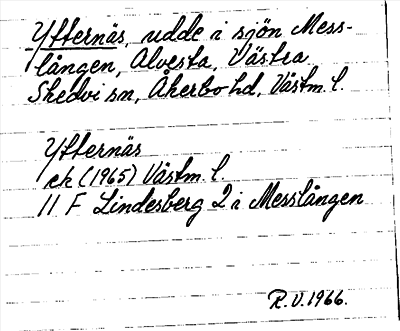 Ytternäs, udde i sjön Mess-
lången, Alvesta, Västra
Skedvi sn, Åkerbo hd, Västm. l.
Ytternäs
ek (1965) Västm. l.
11 F Lindesberg 2 i Messlången
R.V. 1966.